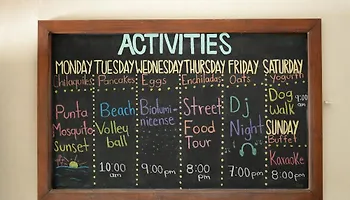 ACTIVITIES
MONDAY TUESDAY WEDNESDAY THURSDAY FRIDAY SATURDAY
Chilaquiles Pancakes Eggs Enchiladas Oats Yogurth
Punta
Mosquito
Sunset
Beach
Volley
ball
10:00
am
Biolumi-
nicense
9:00pm
Street
Food
Tour
8:00
pm
Dj
Night
7:00pm
Dog 9:00
Walk am
SUNDAY
Buffet
Karaoke
8:00pm